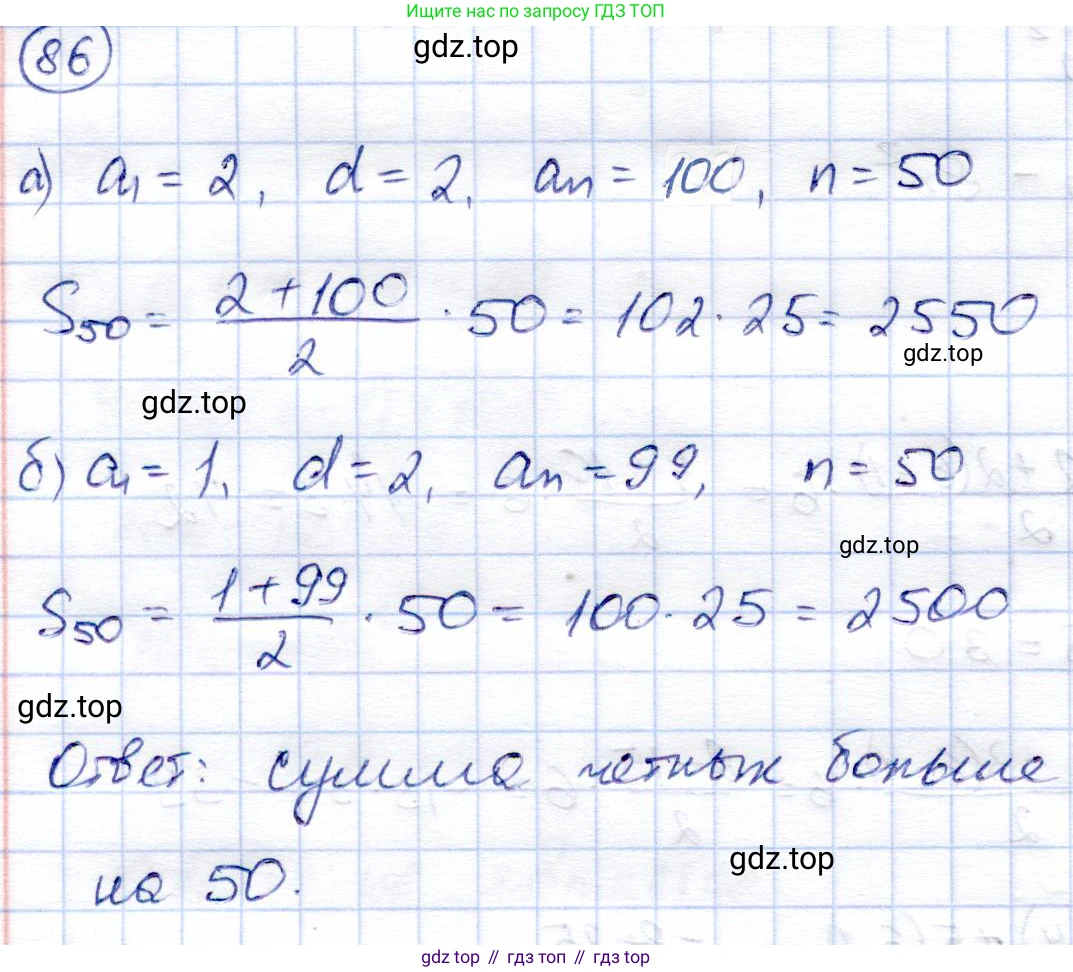 Ищите нас по запросу ГДЗ ТОП
86
gdz.top
а) a₁ = 2, d = 2, aₙ = 100, n = 50
S₅₀ = (2 + 100)/2 · 50 = 102 · 25 = 2550
gdz.top
gdz.top
б) a₁ = 1, d = 2, aₙ = 99, n = 50
gdz.top
S₅₀ = (1 + 99)/2 · 50 = 100 · 25 = 2500
gdz.top
Ответ: сумма четных больше
gdz.top
на 50.
gdz.top // гдз топ // гдз top